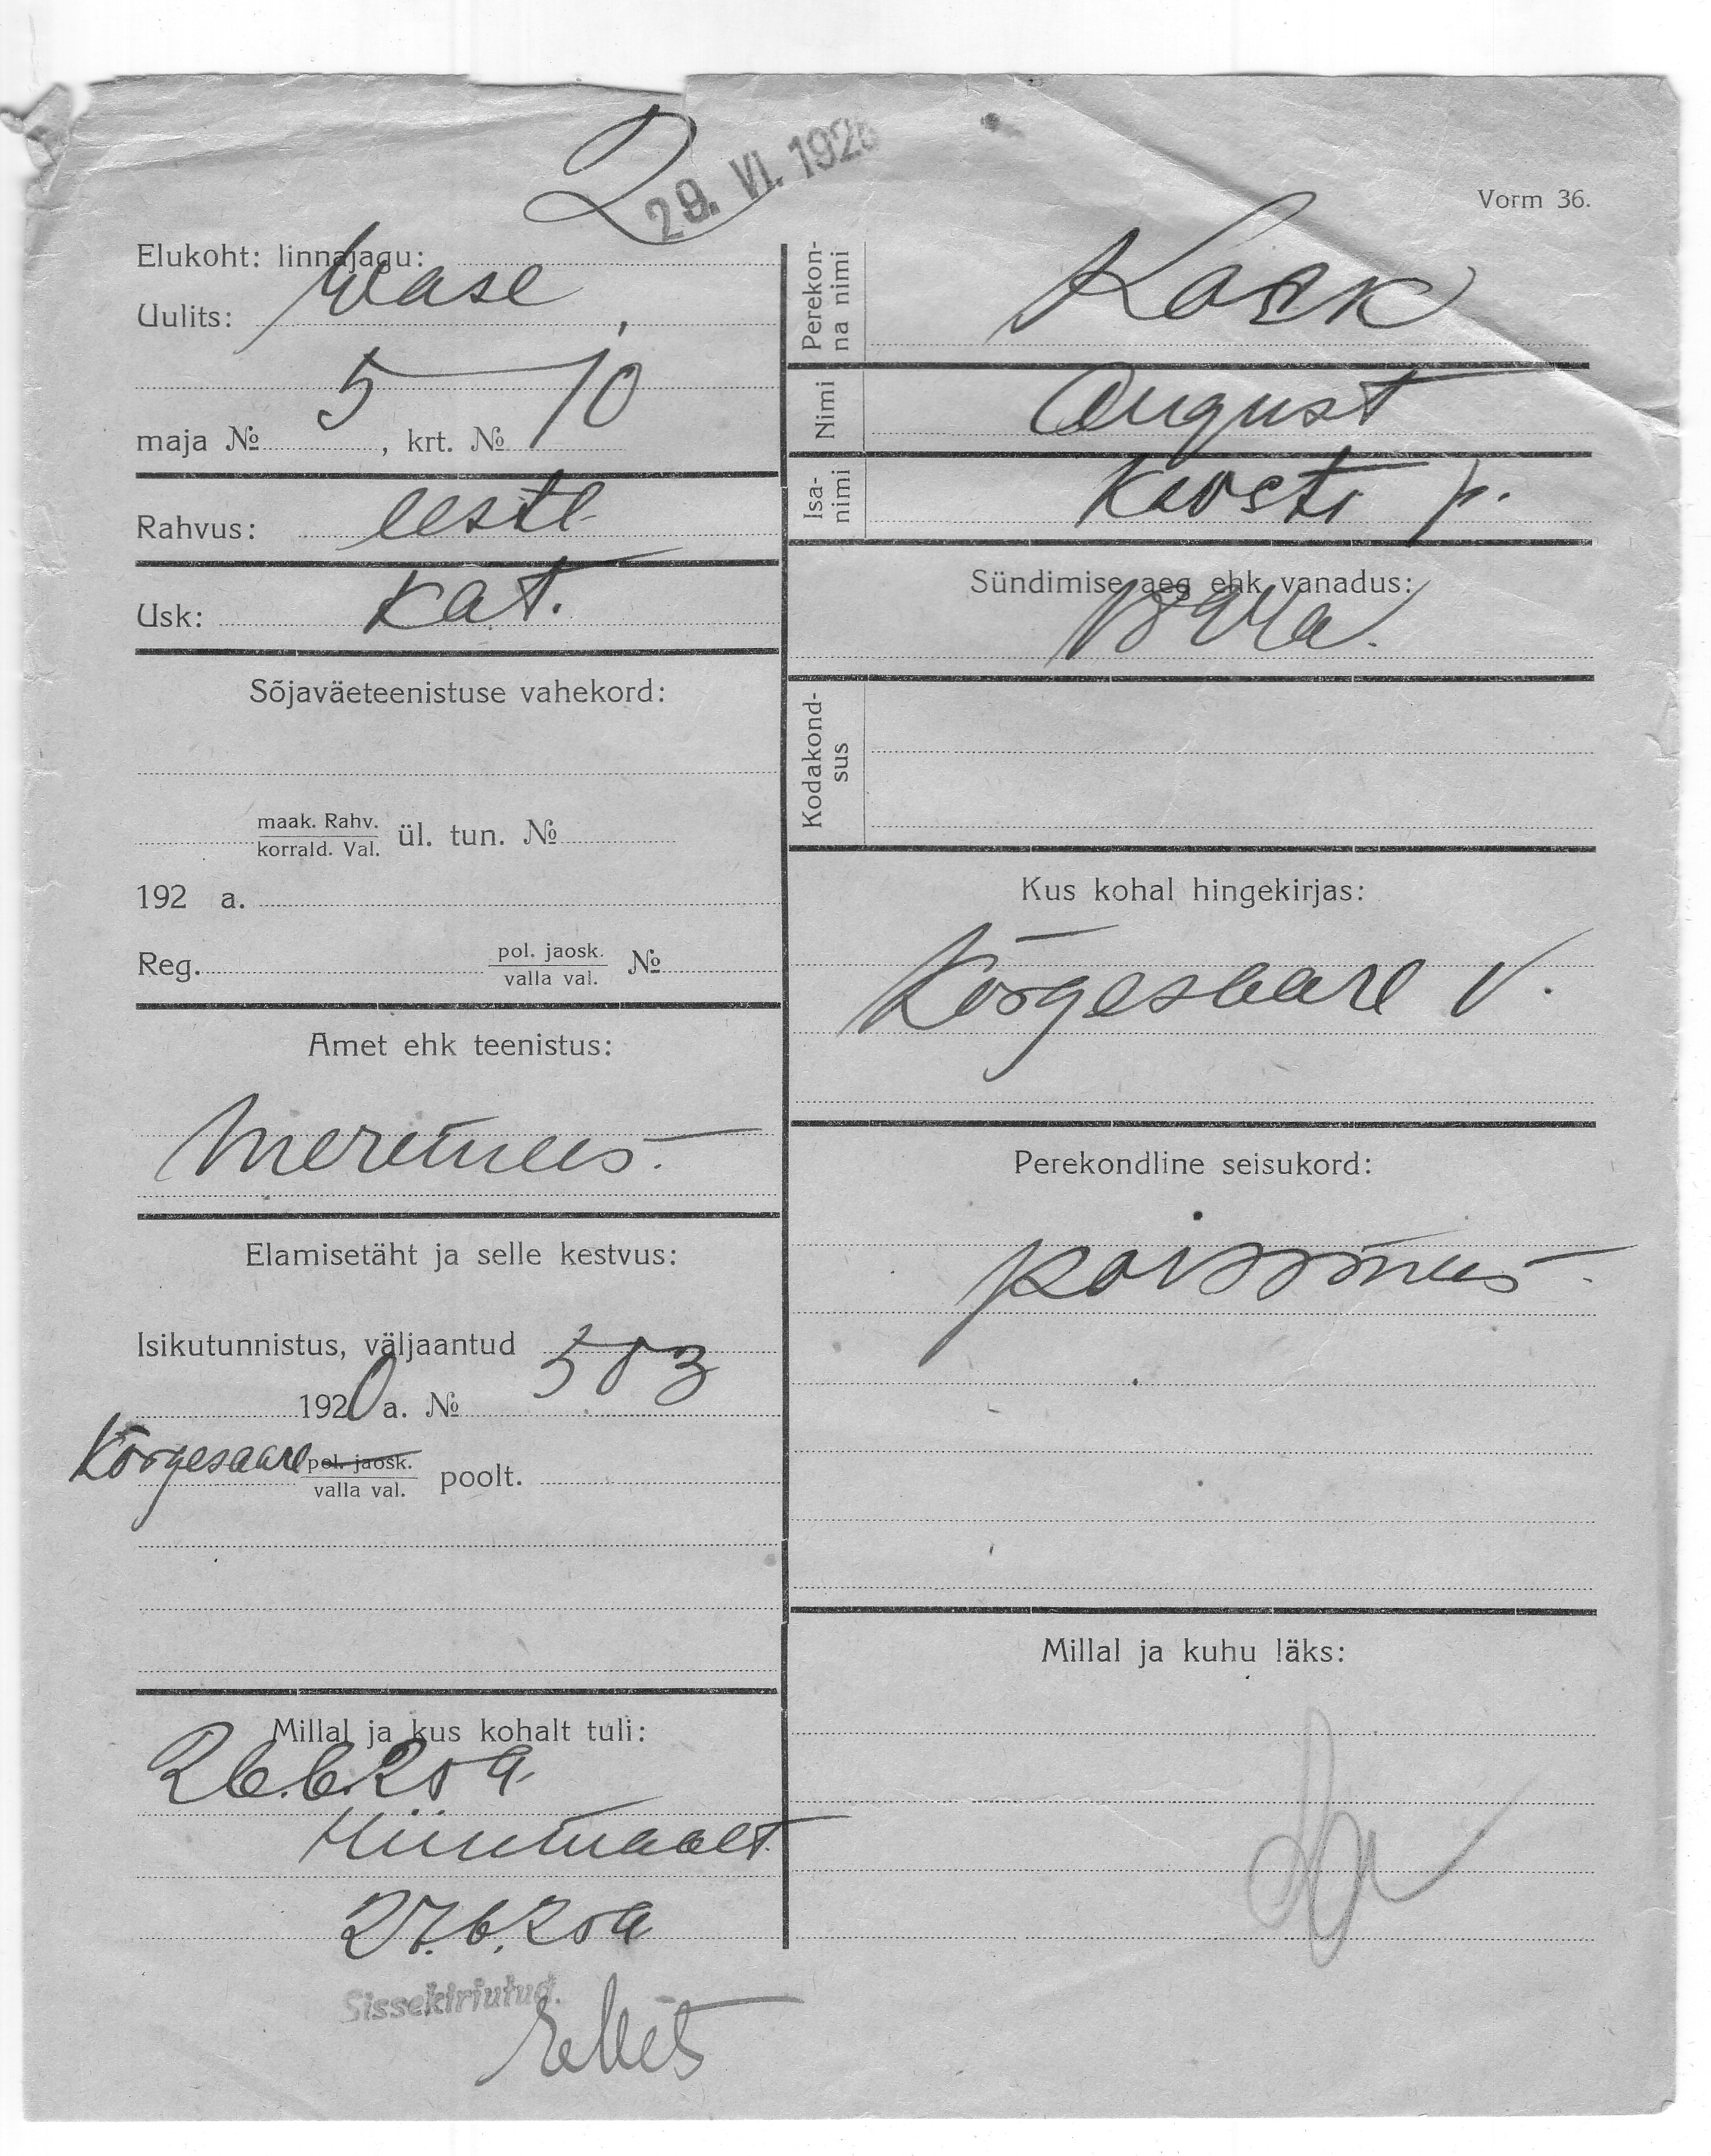 2
29. VI. 192
Vorm 36.
Elukoht: linnajagu:
Uulits: Wase
5 — 10
maja № , krt. №
Rahvus: eestl.
Usk: Kat.
Sõjaväeteenistuse vahekord:
maak. Rahv.
korrald. Val. ül. tun. №
192 a.
Reg. pol. jaosk.
valla val. №
Amet ehk teenistus:
Meremees.
Elamisetäht ja selle kestvus:
Isikutunnistus, väljaantud
1920 a. № 503
Kõrgesaare pol. jaosk.
valla val. poolt.
Millal ja kus kohalt tuli:
26.6.20 a.
Hiiumaalt
27.6.20 a
Sissekirjutud.
Perekon-
na nimi
Nimi August
Isa-
nimi p.
Sündimise aeg ehk vanadus:
Kodakond-
sus
Kus kohal hingekirjas:
Kõrgesaare v.
Perekondline seisukord:
poissmees.
Millal ja kuhu läks: